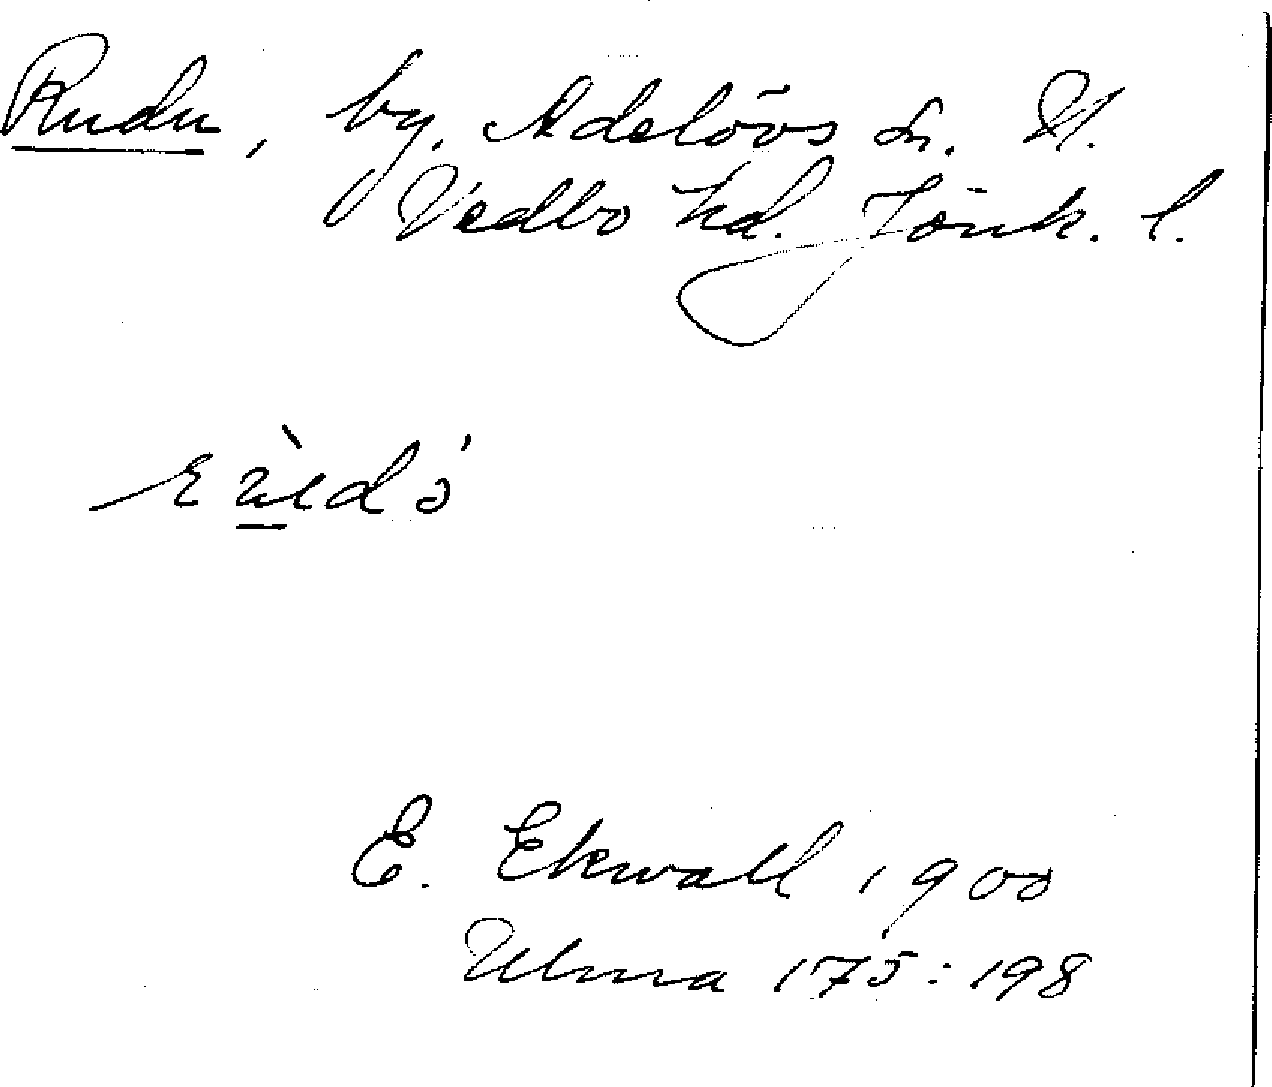 Rudu, by. Adelövs sn. N.
Vedbo hd. Jönk. l.
E. Ekwall 1900
Ulma 175:198